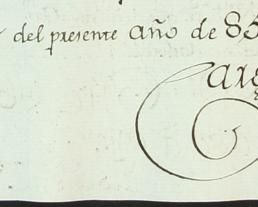 del presente año de 85